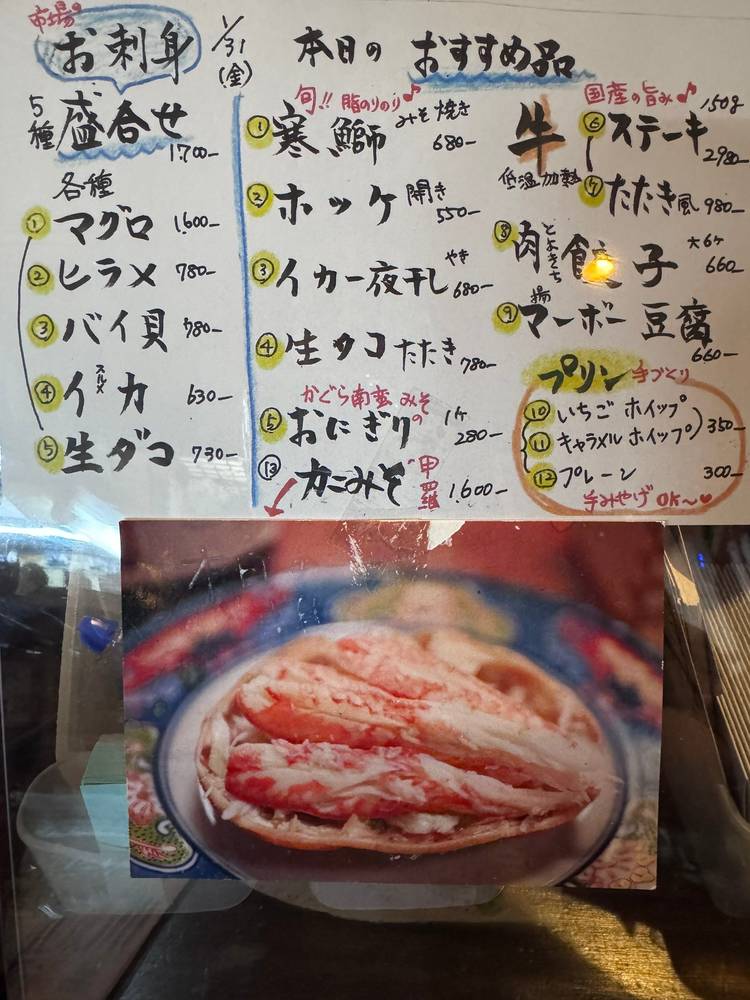 市場の
お刺身
1/31
(金)
5種 盛合せ
1700-
各種
① マグロ 1.600-
② ヒラメ 780-
③ バイ貝 780-
④ イカ スルメ 630-
⑤ 生ダコ 730-
本日の おすすめ品
旬!! 脂のりのり♪
① 寒鰤 みそ焼き 680-
② ホッケ 開き 550-
③ イカ一夜干し やき 680-
④ 生タコ たたき 780-
かぐら南蛮みその
⑤ おにぎり 1ケ 280-
⑬ カニみそ 甲羅 1.600-
国産の旨み♪
牛 低温加熱
⑥ ステーキ 150g 2980-
⑦ たたき風 980-
⑧ 肉餃子 とよきち 大6ケ 660-
⑨ マーボー豆腐 揚 660-
プリン 手づくり
⑩ いちごホイップ
⑪ キャラメルホイップ 350-
⑫ プレーン 300-
手みやげ OK〜♥